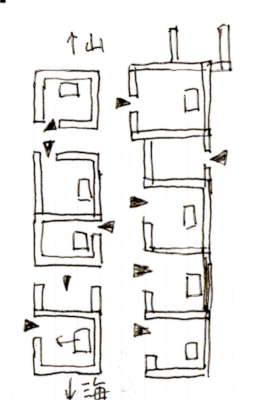 ↑山
↓海